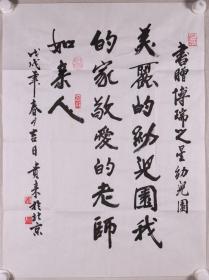 書贈博瑞之星幼兒園
美麗的幼兒園我
的家敬愛的老師
如亲人
戊戌年春月吉日贵来於北京